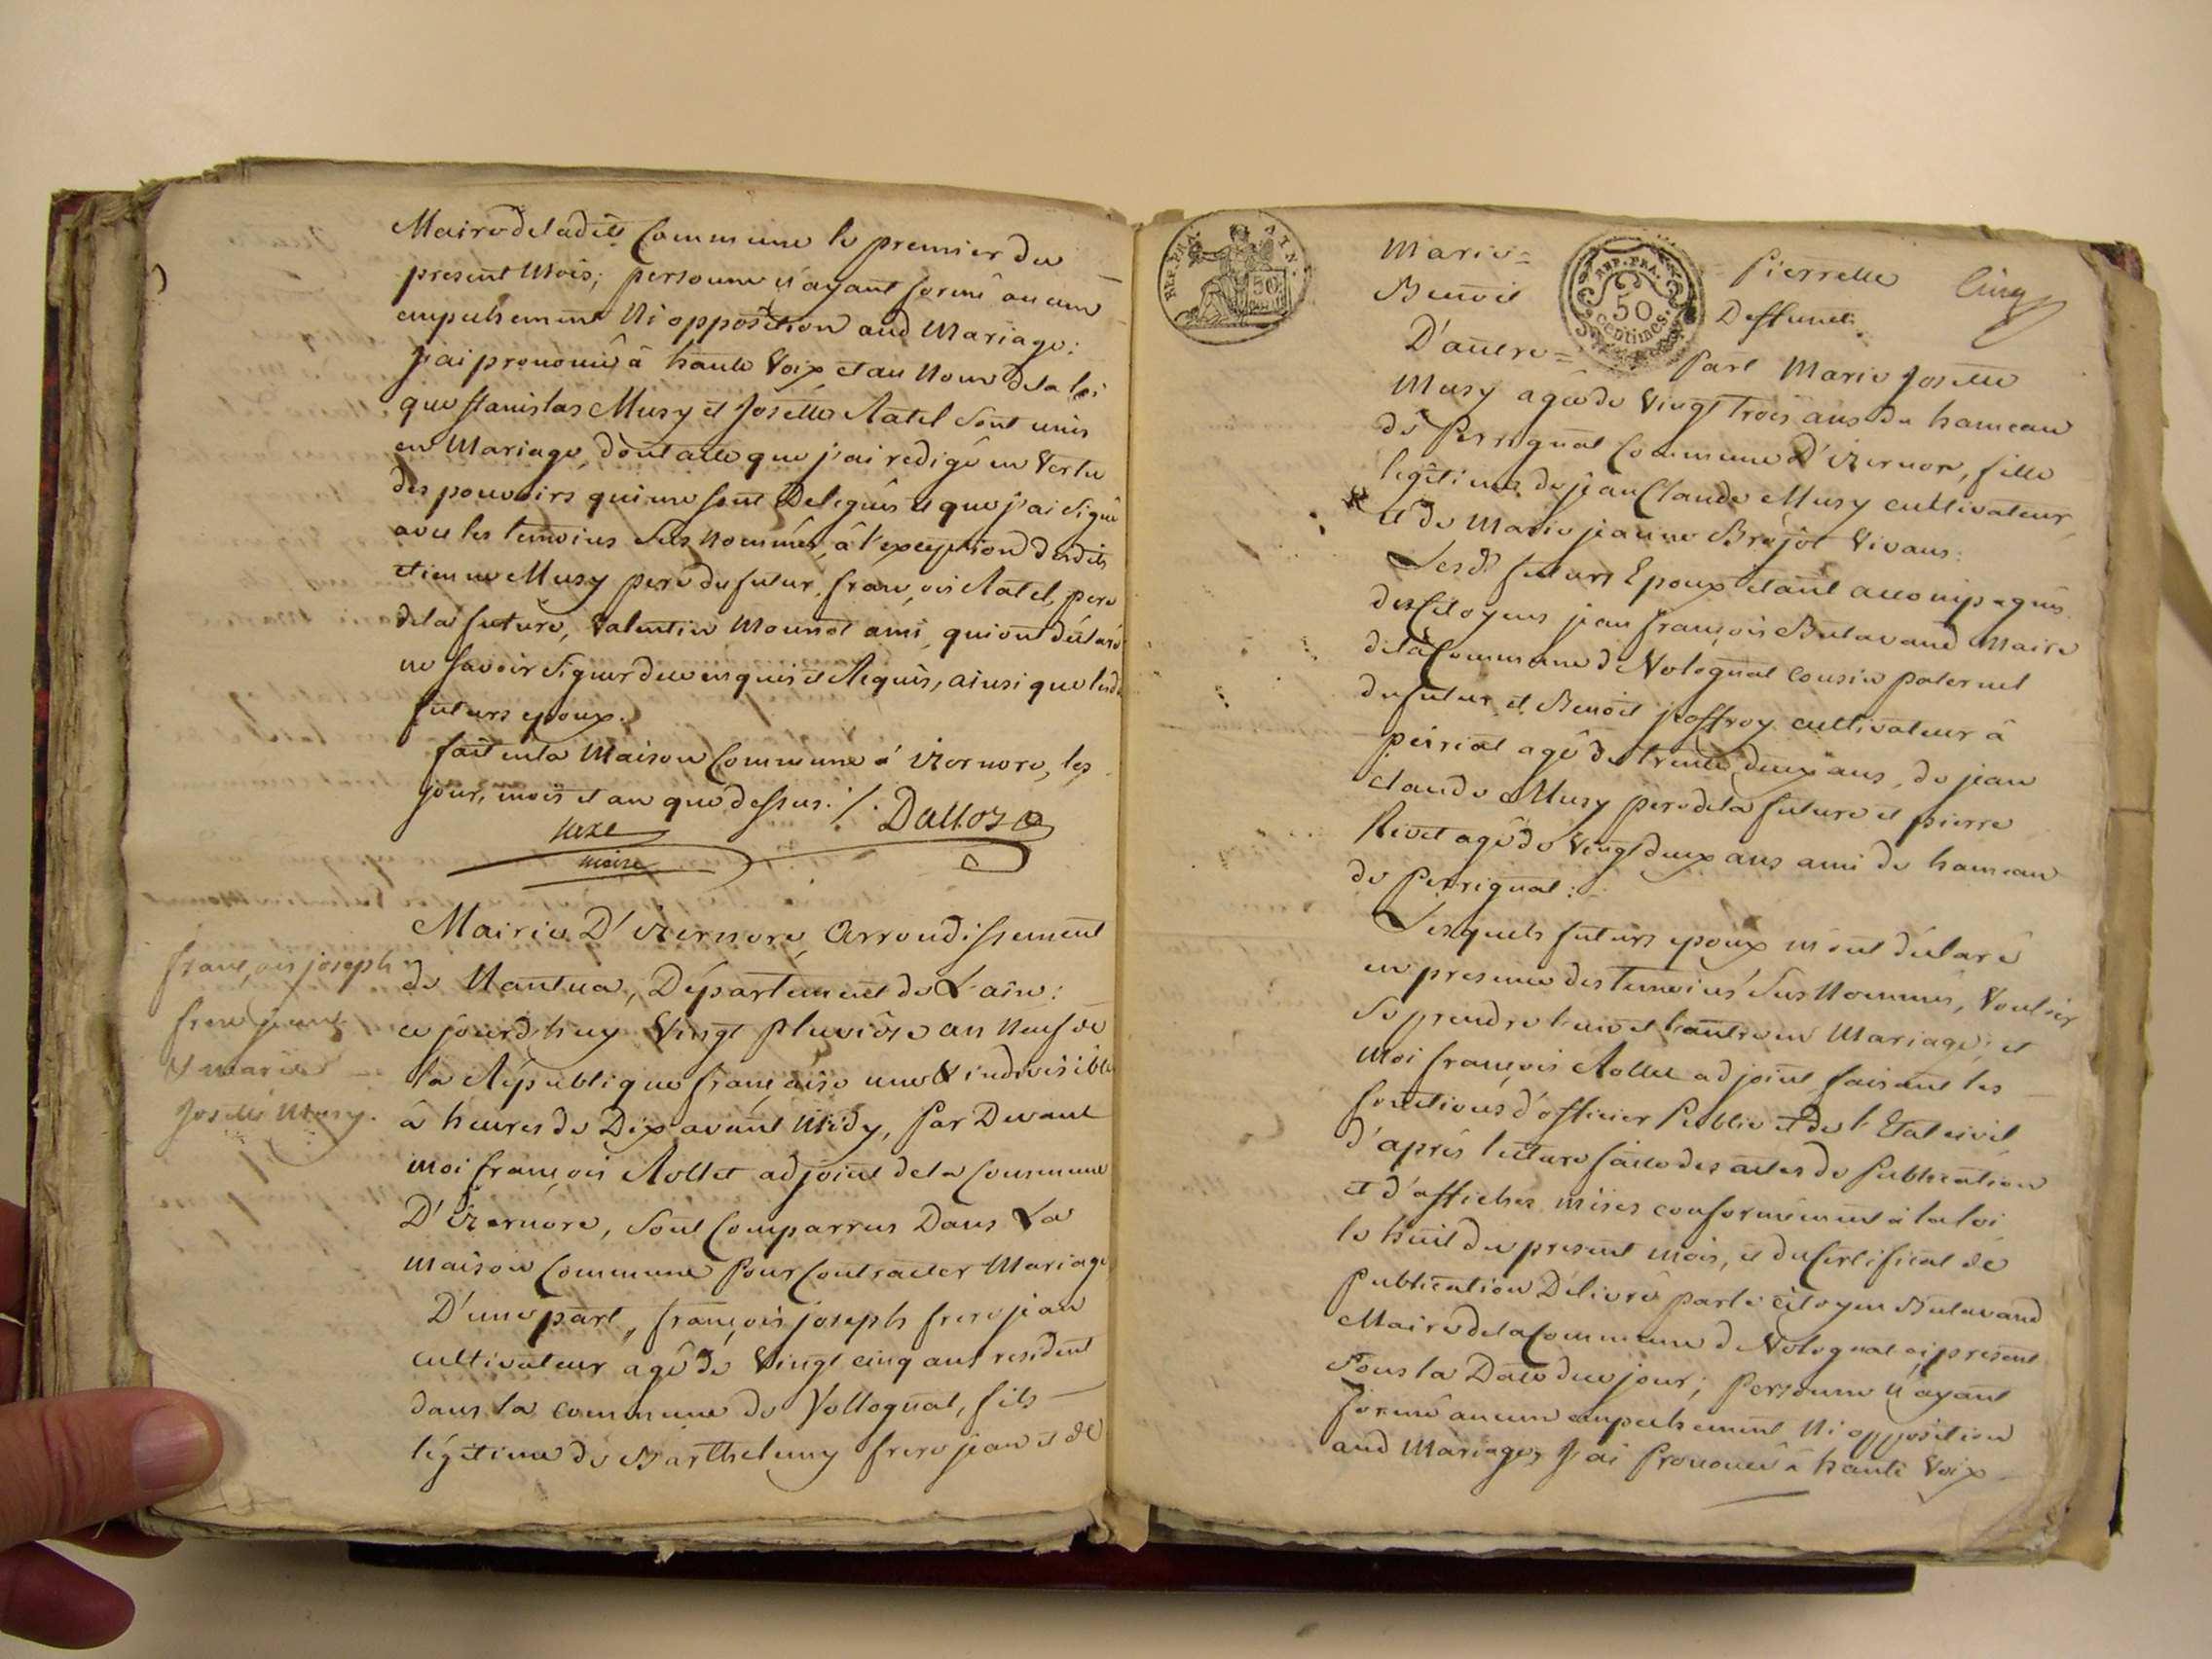 Maire de ladite Commune le premier du
present Mois; personne n'ayant formé aucun
empechement Ni opposition aud Mariage:
J'ai prononcé â haute Voix et au Nom de la loi
que Stanislas Musy et Josette Ratel Sont unis
en Mariage, dont acte que j'ai redigé en Vertu
des pouvoirs qui me sont Delegués et que j'ai Signé
avec les temoins Sus Nommés, â l'exception desdits
etienne Musy pere du futur, françois Ratel, pere
de la future, Valentin Mounot ami, qui ont déclaré
ne savoir Signer de ce enquis et Requis, ainsi que lesd
futurs epoux.
fait en la Maison Commune á izernore, les
jour, mois et an que dessus ./. Dalloz
maire
Mairie D'izernore, Arrondissement
de Nantua, Département de L'ain:
françois joseph
frere jean
et marie
Josette Musy.
ce jourd'huy Vingt pluviôse an Neuf de
la République française une & indivisible
â heures de Dix avant Midy, Par Devant
moi françois Rollet adjoint de la Commune
D'izernore, Sont Comparrus Dans La
maison Commune Pour Contracter Mariage
D'une part, françois joseph frere jean
cultivateur agé de Vingt cinq ans resident
dans la commune de Vollognat, fils
légitime de Barthelemy frere jean et de
REP. FRA. 50 cent.
REP. FRA. 50 centimes.
Marie = Pierrette Cinq
Benoit Deffunct.
D'autre = Part Marie Josette
Musy agée de Vingt Trois ans du hameau
de Perrignat Commune D'izernore, fille
legitime de jean Claude Musy cultivateur
et de Marie jeanne Brejot Vivans.
Lesd. futurs Epoux etant accompagnés
des Citoyens jean françois Butavand Maire
de la Commune de Volognat cousin paternel
du futur et Benoit joffroy cultivateur â
peiriat agé de trente deux ans, de jean
claude Musy pere de la future et pierre
Rivet agé de Vingt deux ans ami du hameau
de Perrignat:
Lesquels futurs epoux m'ont déclaré
en presence des temoins Sus Nommés, Vouloir
Se prendre l'un et l'autre en Mariage; et
Moi françois Rollet adjoint faisant les
fonctions d'officier Public et de l'Etat civil
d'après lecture faite des actes de Publication
et d'affiches mises conformement â la loi
le huit du present mois, et du Certificat de
Publication Délivré par le citoyen Butavand
Maire de la Commune de Volognat ci present
Sous la Date du jour; Personne n'ayant
formé aucun empechement Ni opposition
aud Mariage, J'ai Prononcé â haute Voix